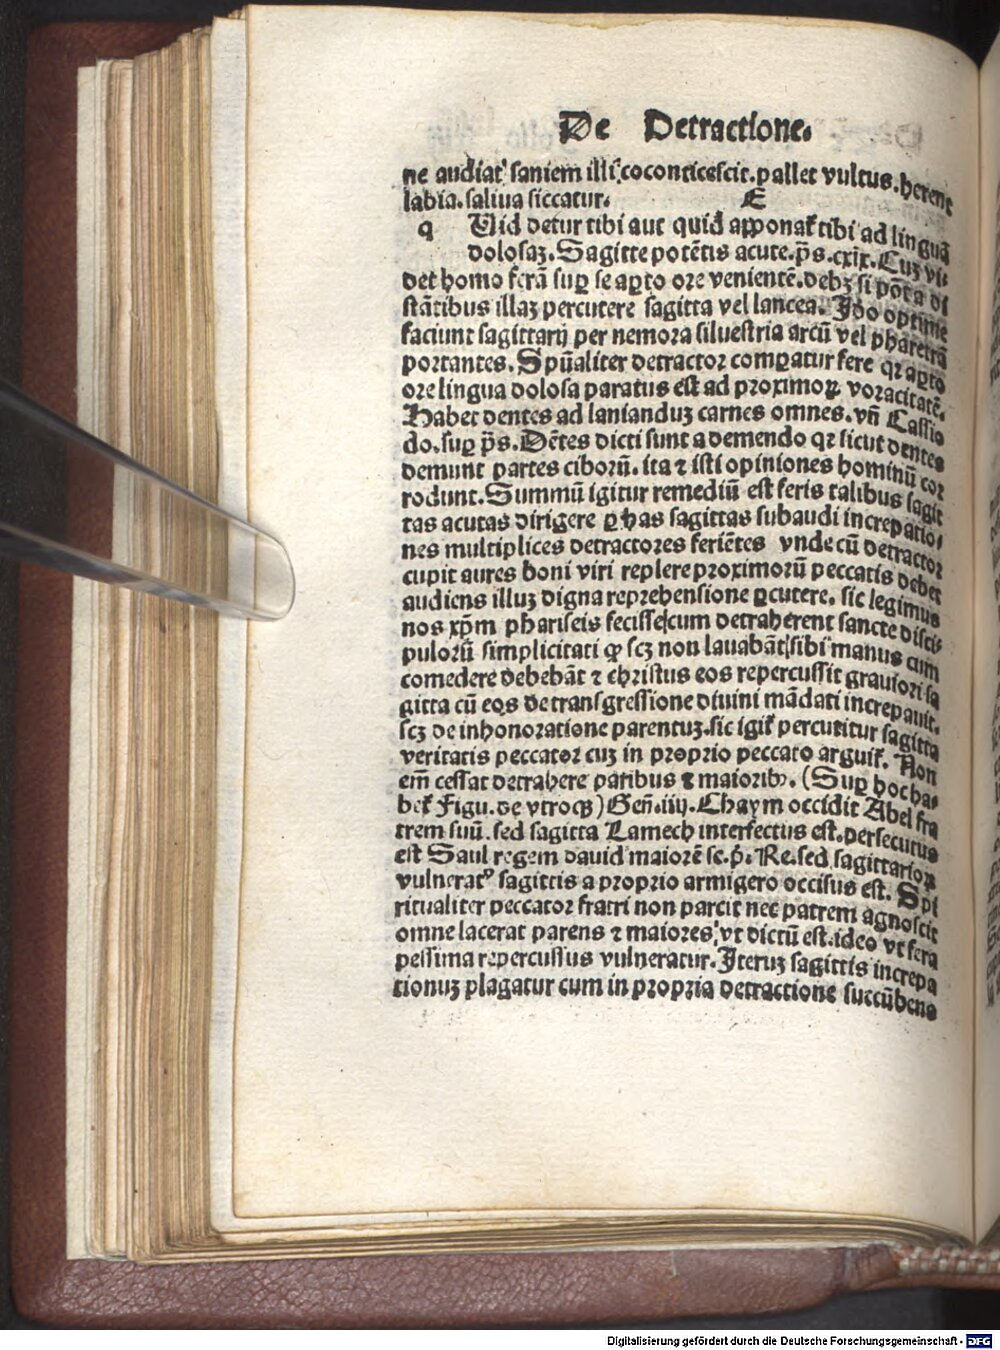 De Detractione.
ne audiat' saniem illi'.coconticescit.pallet vultus.herent
labia.saliua siccatur. E
q Uid detur tibi aut quid apponat̃ tibi ad linguã
dolosaʒ. Sagitte potẽtis acute.p̃s.cxix. Cuʒ vi-
det homo ferã suꝑ se aꝑto ore venientẽ.debʒ si pot a di
stãtibus illaʒ percutere sagitta vel lancea. Jdo optime
faciunt sagittarij per nemora siluestria arcũ vel pharetrã
portantes. Spũaliter detractor comꝑatur fere qꝛ aꝑto
ore lingua dolosa paratus est ad proximoꝝ voracitatẽ.
Habet dentes ad lanianduʒ carnes omnes. vñ Cassio
do.suꝑ p̃s. Dẽtes dicti sunt a demendo qꝛ sicut dentes
demunt partes ciborũ. ita ⁊ isti opiniones hominũ cor
rodunt. Summũ igitur remediũ est feris talibus sagit
tas acutas dirigere ꝑ has sagittas subaudi increpatio-
nes multiplices detractores feriẽtes vnde cũ detractor
cupit aures boni viri replere proximorũ peccatis debet
audiens illuʒ digna reprehensione ꝑcutere. sic legimus
nos xp̃m phariseis fecisse|cum detraherent sancte disci-
pulorũ simplicitati ꝙ scʒ non lauabãt|sibi manus cum
comedere debebãt ⁊ christus eos repercussit grauiori sa
gitta cũ eos de transgressione diuini mãdati increpauit.
scʒ de inhonoratione parentuʒ.sic igit̃ percutitur sagitta
veritatis peccator cuʒ in proprio peccato arguit̃. Non
em̃ cessat detrahere patribus ⁊ maioribꝰ. (Suꝑ hoc ha-
bet̃ Figu. de vtroqꝫ) Geñ.iiij. Chaym occidit Abel fra
trem suũ. sed sagitta Lamech interfectus est.persecutus
est Saul regem dauid maiorẽ se.p̃. Re.sed sagittarioꝝ
vulneratꝰ sagittis a proprio armigero occisus est. Spi
ritualiter peccator fratri non parcit nec patrem agnoscit
omne lacerat parens ⁊ maiores,'vt dictũ est.ideo vt fera
pessima repercussus vulneratur. Jteruʒ sagittis increpa
tionuʒ plagatur cum in propria detractione succũbens
Digitalisierung gefördert durch die Deutsche Forschungsgemeinschaft - DFG